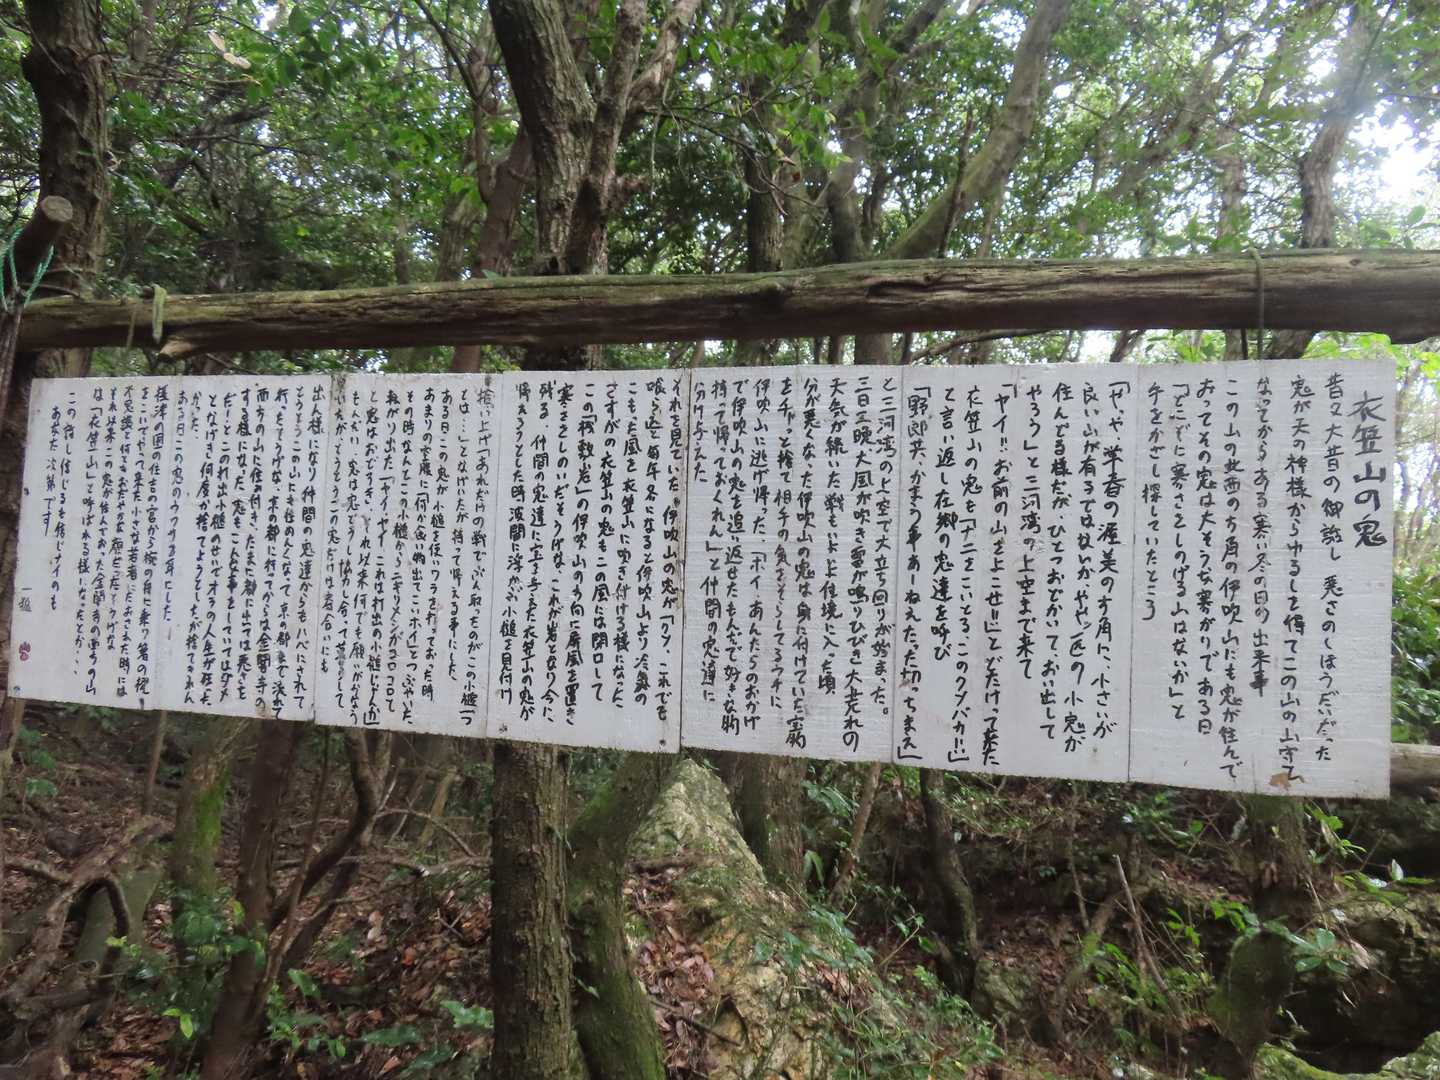 衣笠山の鬼
昔又大昔の御話し 悪さのしほうだいだった
鬼が天の神様からゆるしを得てこの山の山守に
なってからある寒い冬の日の出来事
この山の北西の方角の伊吹山にも鬼が住んで
おってその鬼は大そうな寒がりである日
「どこぞに寒さをしのげる山はないか」と
手をかざし探していたところ
「やっや 常春の渥美の方角に、小さいが
良い山が有るではないかややッ一匹の小鬼が
住んどる様だが ひとつおどかいて、おい出して
やろう」と三河湾の上空まで来て
「ヤイ!!お前の山をよこせ!!」とどなって来た
衣笠山の鬼も「ナニをこいとる、このクソバカ!!」
と言い返し在郷の鬼達を呼び
「野郎共、かまう事あーねえたった切っちまえ」
と三河湾の上空で大立ち回りが始まった。
三日三晩大風が吹き雷が鳴りひびき大荒れの
天気が続いた戦もいよいよ佳境に入った頃
分が悪くなった伊吹山の鬼は身に付けていた宝物
をチャッと捨て相手の気をそらしてるウチに
伊吹山に逃げ帰った「ホイ、あんたらのおかげ
で伊吹山の鬼を追い返せたもんだで好きな物
持って帰っておくれん」と仲間の鬼達に
分け与えた
それを見ていた伊吹山の鬼が「クソ、これでも
喰らえと毎年冬になると伊吹山より冷気の
こもった風を衣笠山に吹き付ける様になった
さすがの衣笠山の鬼もこの風には閉口して
この「桟敷岩」の伊吹山の方向に屏風を置き
寒さをしのいだそうげな、これが岩となり今に
残る、仲間の鬼達に宝を与えた衣笠山の鬼が
帰ろうとした時波間に浮かぶ小槌を見付け
拾い上げ「あれだけの戦でぶん取ったのがこの小槌一つ
とは…」となげいたが持って帰える事にした、
ある日この鬼が小槌を使いワラを打っておった時
あまりの空腹に「何か食い物出てこホイ」とつぶやいた
その時なんとこの小槌からニギリメシがコロコロて
転がり出た「ヤイヤイこれは打出の小槌じゃんか」
と鬼はおどろき、それ以来何でも願いがかなう
もんだい、鬼は鬼どうし協力し合って暮らして
いたがそうそうこの鬼だけは寄合いにも
出ん様になり仲間の鬼達からもハバにされて
とうとうこの山にも住めんくなって京の都まで流れて
行ったそうげな、京の都に行ってからは金閣寺の
西方の山に住み付き、たまに都に出ては悪さを
する様になった、鬼も「こんな事をしていてはダメ
だ!!とこのれ出小槌のせいでオラの人生が狂った
となげき何度か捨てようとしたが捨てれんかった、
ある日この鬼のウワサの耳にした
摂津の国の住吉の宮から椀の舟に乗り箸の櫂
をこいでやって来た小さな若者におさえた時には
不思議と何ともおだやかな顔だったそうげな
それ以来この鬼が住んでおった金閣寺の西方の山
は「衣笠山」と呼ばれる様になったとか…
この話し信じるも信じナイのも
あなた次第です